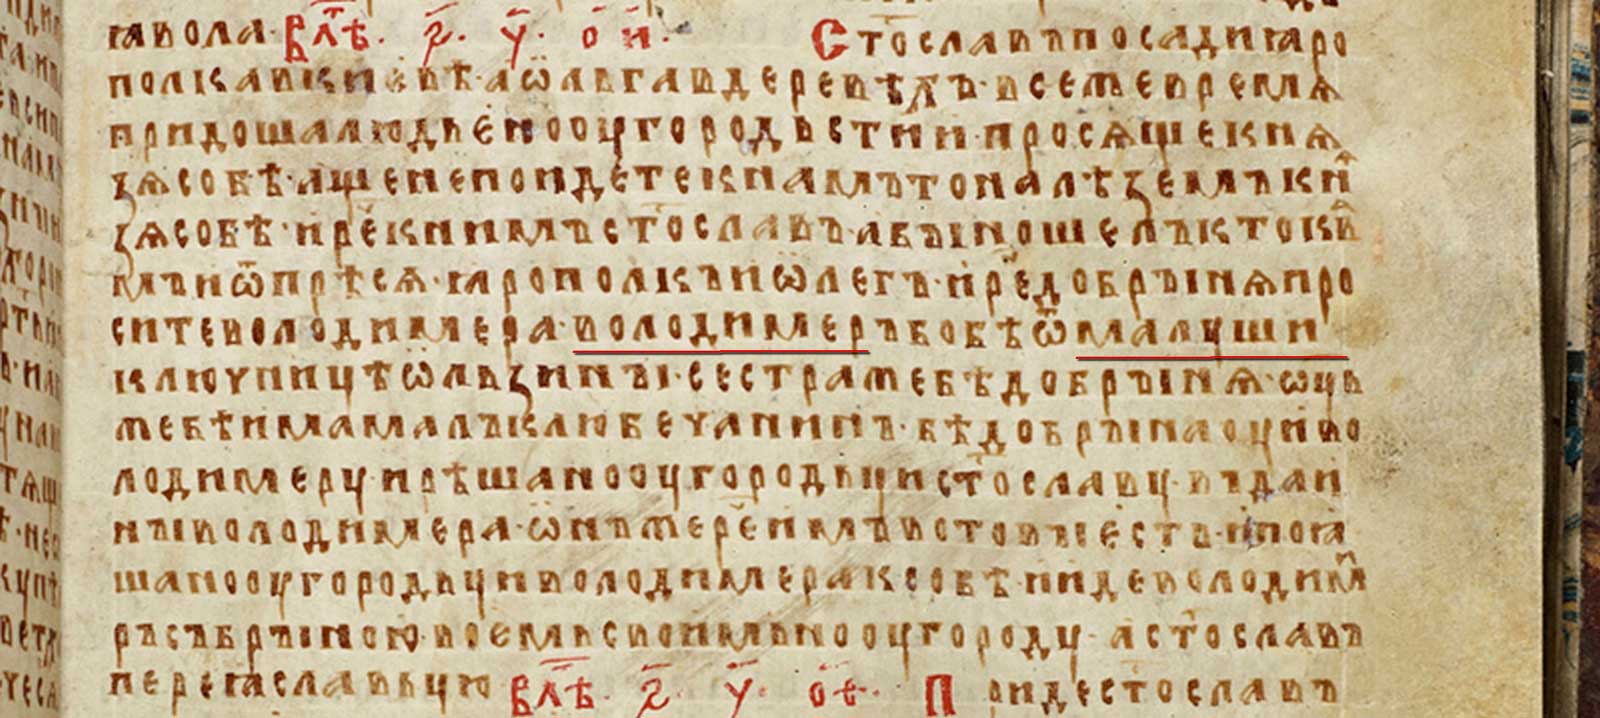 ꙗвола· в лѣт ҂ѕ· у҃· о҃и· Ст҃ославъ посади ꙗро
полка в киевѣ· а ѡльга в деревѣхъ· в се же времѧ
придоша людье нооугородьстии· просѧще кнѧ
зѧ собѣ· аще не поидете к намъ то налѣземъ кнѧ
зѧ собѣ· и реч к нимъ ст҃ославъ· а бы пошелъ кто к ва
мъ и ѿпрѣсѧ· ꙗрополкъ и ѡлегъ· и реч добрынѧ про
сите володимера· володимеръ бо бѣ ѿ малуши
ключницѣ ѡльзины· сестра же бѣ добрынѧ· ѡць
же бѣ има малъкъ любечанинъ· бѣ добрына оуи во
лодимеру· и рѣша нооугородьци ст҃ославу· въдаи
ны володимера· ѡнъ же реч имъ вото вы есть· и поꙗ
ша нооугородьци володимера к собѣ· и иде володим
ръ съ бръıною воемъ своимь нооугороду· а ст҃ославъ
переꙗславьцю в лѣт ҂ѕ· у҃· о҃е· Приде ст҃ославъ